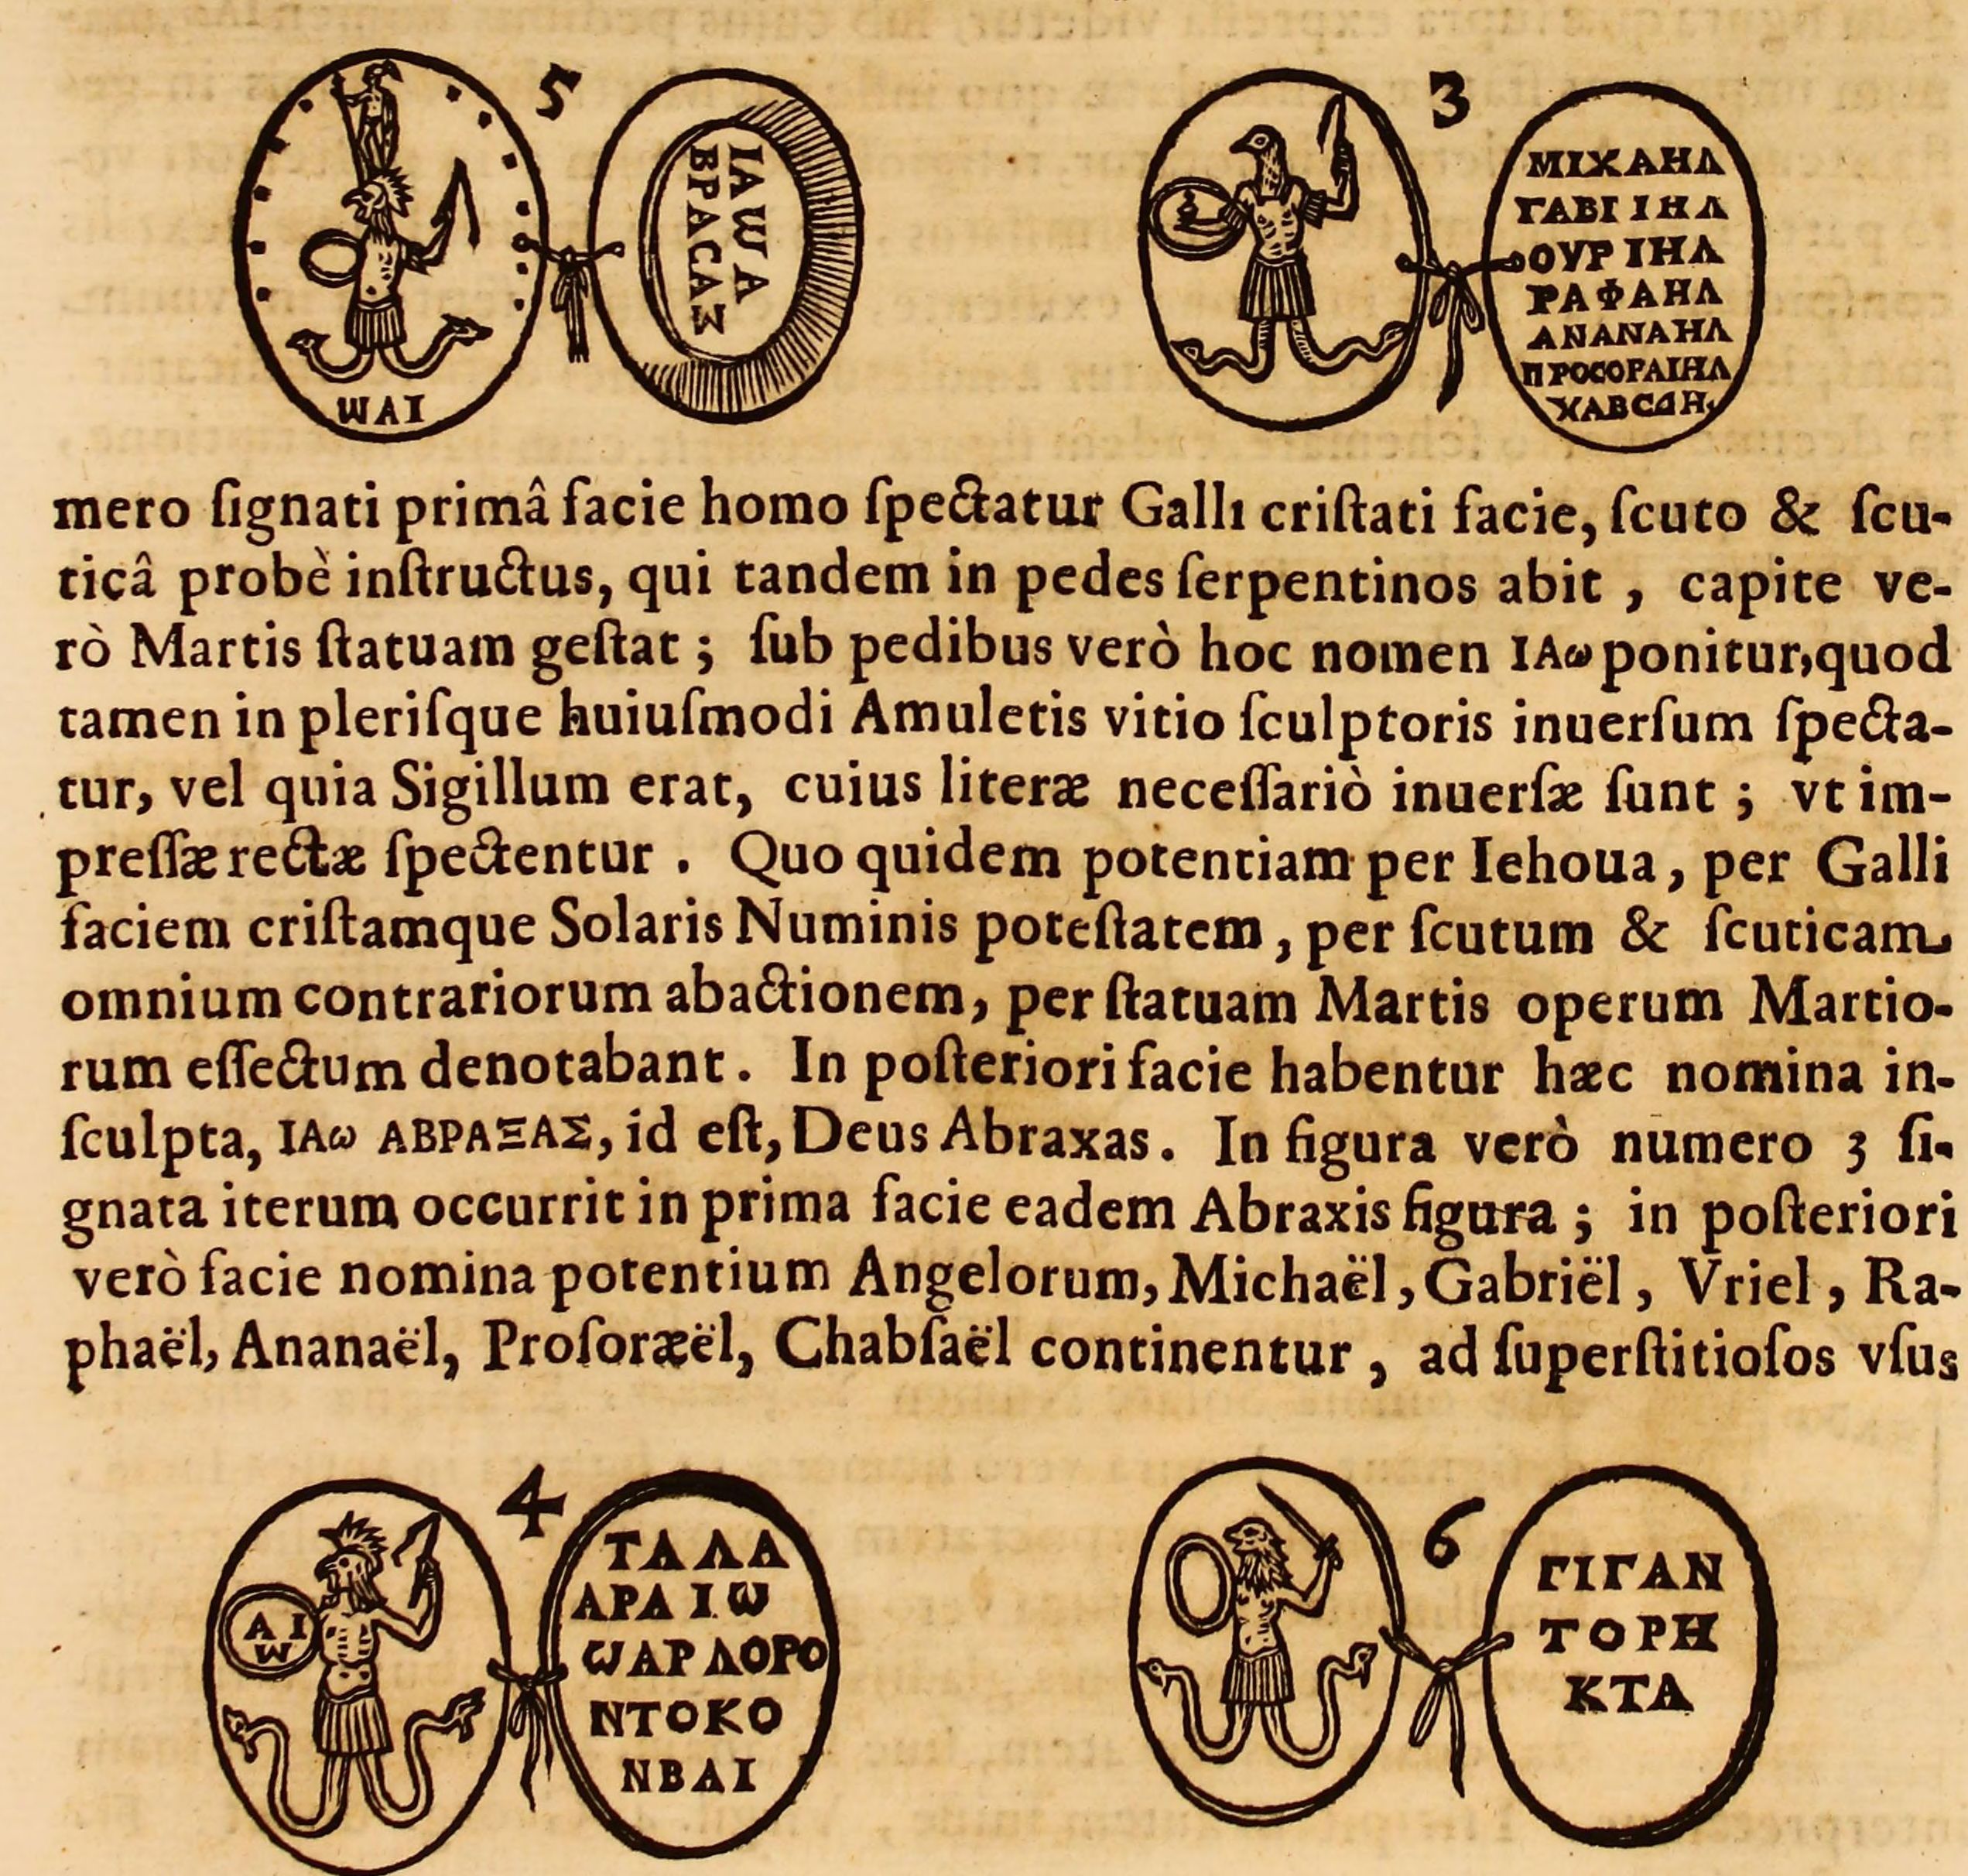 5
ΙΑШΑ
ΒΡΑCΑΣ
ШΑΙ
3
ΜΙΧΑΗΛ
ΓΑΒΓΙΗΛ
ΟΥΡΙΗΛ
ΡΑΦΑΗΛ
ΑΝΑΝΑΗΛ
ΠΡΟCΟΡΑΙΗΛ
ΧΑΒCΔΗ
mero ſignati primâ facie homo ſpectatur Galli criſtati facie, ſcuto & ſcu-
ticâ probè inſtructus, qui tandem in pedes ſerpentinos abit , capite ve-
rò Martis ſtatuam geſtat ; ſub pedibus verò hoc nomen ΙΑω ponitur, quod
tamen in pleriſque huiuſmodi Amuletis vitio ſculptoris inuerſum ſpecta-
tur, vel quia Sigillum erat, cuius literæ neceſſariò inuerſæ ſunt ; vt im-
preſſæ rectæ ſpectentur . Quo quidem potentiam per Iehoua, per Galli
faciem criſtamque Solaris Numinis poteſtatem, per ſcutum & ſcuticam
omnium contrariorum abactionem, per ſtatuam Martis operum Martio-
rum eſſectum denotabant. In poſteriori facie habentur hæc nomina in-
ſculpta, ΙΑω ΑΒΡΑΞΑΣ, id eſt, Deus Abraxas. In figura verò numero 3 ſi-
gnata iterum occurrit in prima facie eadem Abraxis figura ; in poſteriori
verò facie nomina potentium Angelorum, Michaël, Gabriël, Vriel, Ra-
phaël, Ananaël, Proſoræël, Chabſaël continentur , ad ſuperſtitioſos vſus
4
ΑΙ
Ш
ΤΑΛΑ
ΑΡΑΙШ
ωΑΡΛΟΡΟ
ΝΤΟΚΟ
ΝΒΑΙ
6
ΓΙΓΑΝ
ΤΟΡΗ
ΚΤΑ